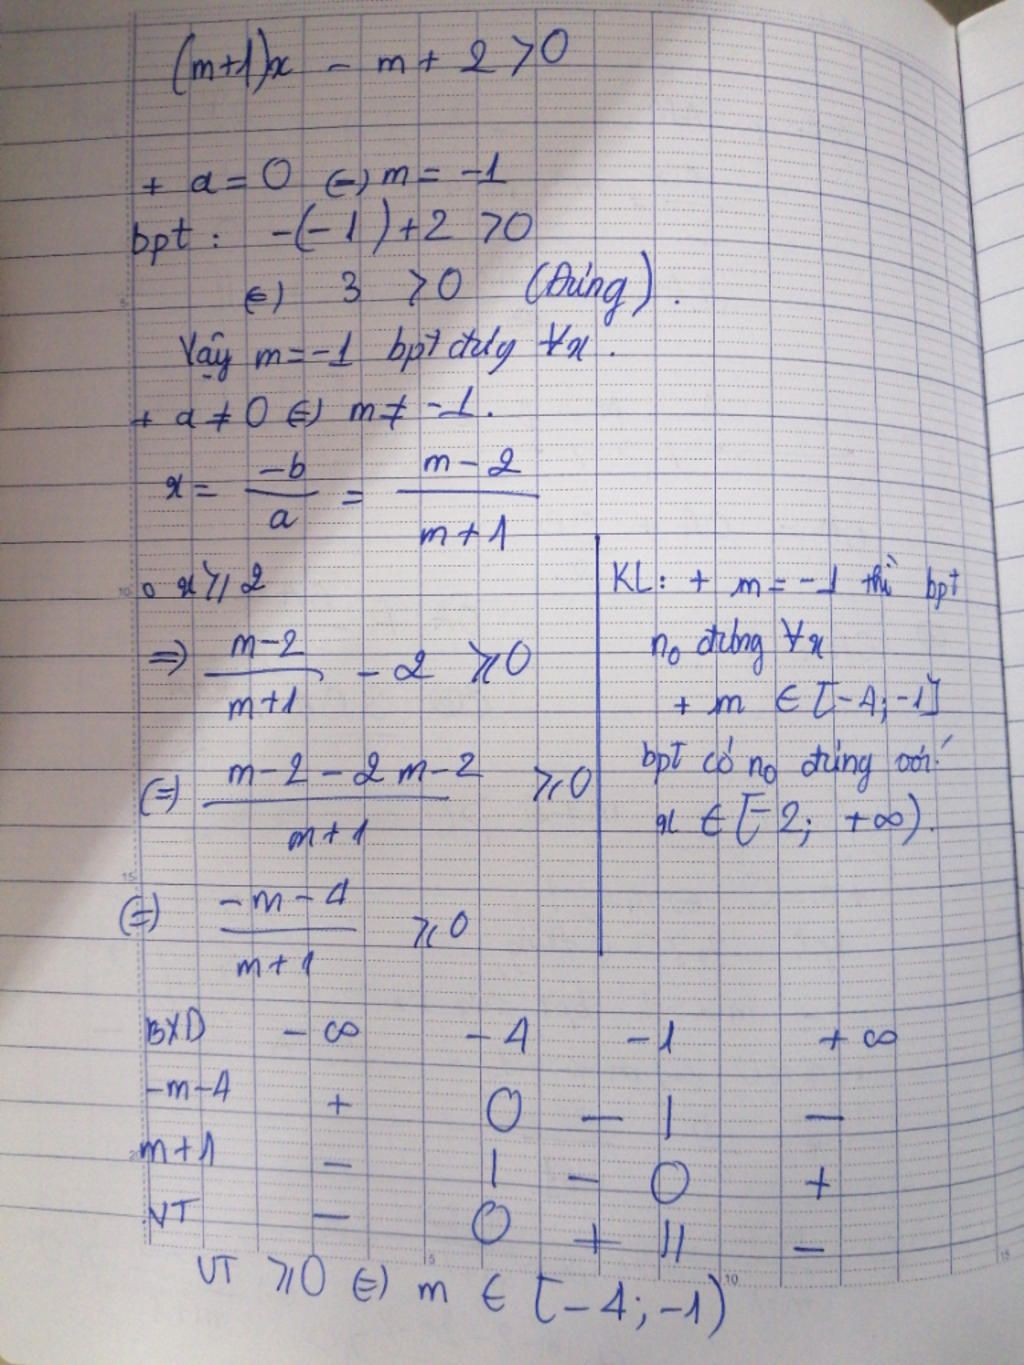 (m+1)x - m + 2 > 0
+ a = 0 (=) m = -1
bpt : -(-1)+2 > 0
(=) 3 > 0 (Đúng).
Vậy m = -1 bpt đúng ∀x.
+ a ≠ 0 (=) m ≠ -1.
x = -b/a = (m-2)/(m+1)
o x ≥ 2
=> (m-2)/(m+1) - 2 ≥ 0
(=) (m-2-2m-2)/(m+1) ≥ 0
(=) (-m-4)/(m+1) ≥ 0
KL: + m = -1 thì bpt
no đúng ∀x
+ m ∈ [-4; -1]
bpt có no đúng với
x ∈ [-2; +∞).
BXD -∞ -4 -1 +∞
-m-4 + 0 - | -
m+1 - | - 0 +
VT - 0 + || -
VT ≥ 0 (=) m ∈ [-4; -1)